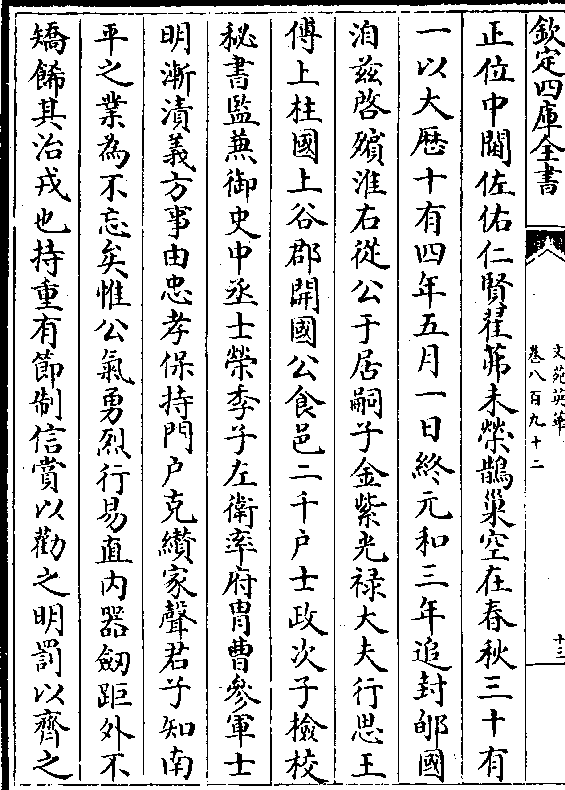 欽定四庫全書
文苑英華
卷八百九十二
十三
正位中閫佐佑仁賢翟茀未榮鵲巢空在春秋三十有
一以大厯十有四年五月一日終元和三年追封邠國
洎兹啓殯淮右從公于居嗣子金紫光禄大夫行思王
傅上柱國上谷郡開國公食邑二千户士政次子檢校
秘書監蕪御史中丞士榮季子左衛率府胄曹參軍士
明漸漬義方事由忠孝保持門户克纉家聲君子知南
平之業為不忘矣惟公氣勇烈行易直内器劒距外不
矯餙其治戎也持重有節制信賞以勸之明罰以齊之